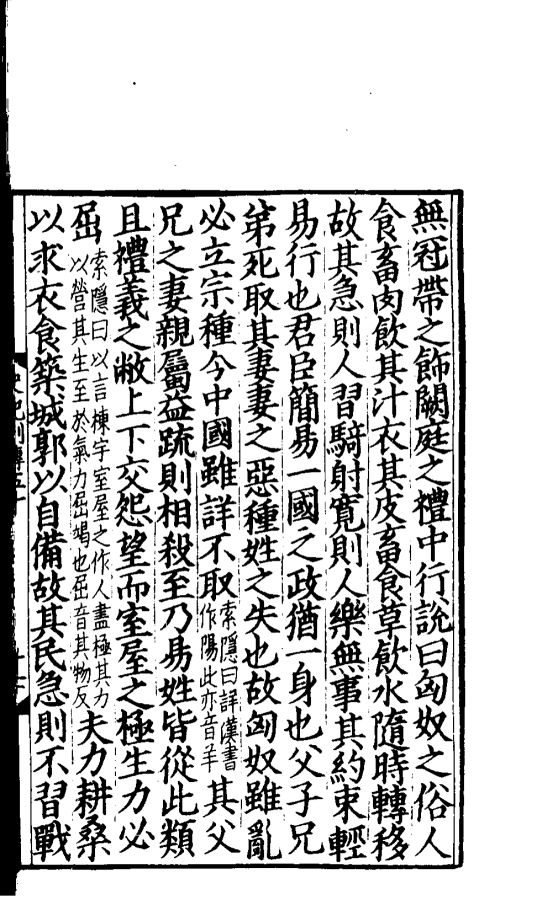 無冠帶之飾闕庭之禮中行說曰匈奴之俗人
食畜肉飲其汁衣其皮畜食草飲水隨時轉移
故其急則人習騎射寬則人樂無事其約束輕
易行也君臣簡易一國之政猶一身也父子兄
弟死取其妻妻之惡種姓之失也故匈奴雖亂
必立宗種今中國雖詳不取索隱曰詳漢書作陽此亦音羊其父
兄之妻親屬益疏則相殺至乃易姓皆從此類
且禮義之敝上下交怨望而室屋之極生力必
屈索隱曰以言棟宇室屋之作人盡極其力以營其生至於氣力屈竭也屈音其物反夫力耕桑
以求衣食築城郭以自備故其民急則不習戰